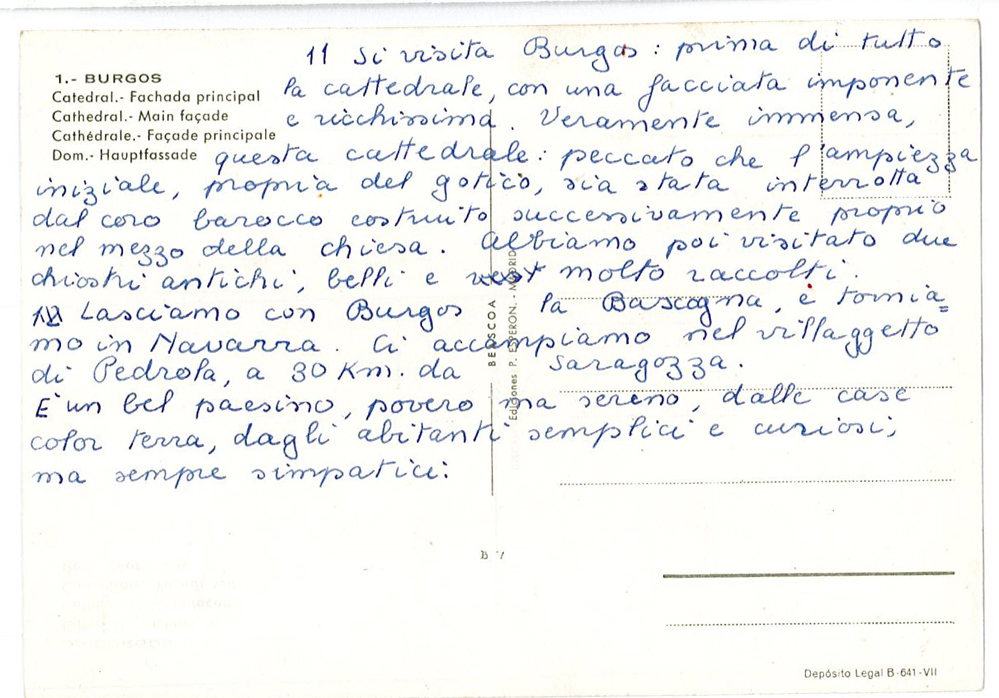 11 Si visita Burgos: prima di tutto
1.- BURGOS
Catedral.- Fachada principal
Cathedral.- Main façade
Cathédrale.- Façade principale
Dom.- Hauptfassade
la cattedrale, con una facciata imponente
e ricchissima. Veramente immensa,
questa cattedrale: peccato che l'ampiezza
iniziale, propria del gotico, sia stata interrotta
dal coro barocco costruito successivamente proprio
nel mezzo della chiesa. Abbiamo poi visitato due
chiostri antichi, belli e molto raccolti.
Lasciamo con Burgos la Bascogna, e tornia=
mo in Navarra. Ci accampiamo nel villaggetto
di Pedrola, a 30 Km. da Saragozza.
E' un bel paesino, povero ma sereno, dalle case
color terra, dagli abitanti semplici e curiosi,
ma sempre simpatici:
BEASCOA
Ediciones P. ESPERON.- MADRID
B 7
Depósito Legal B-641-VII